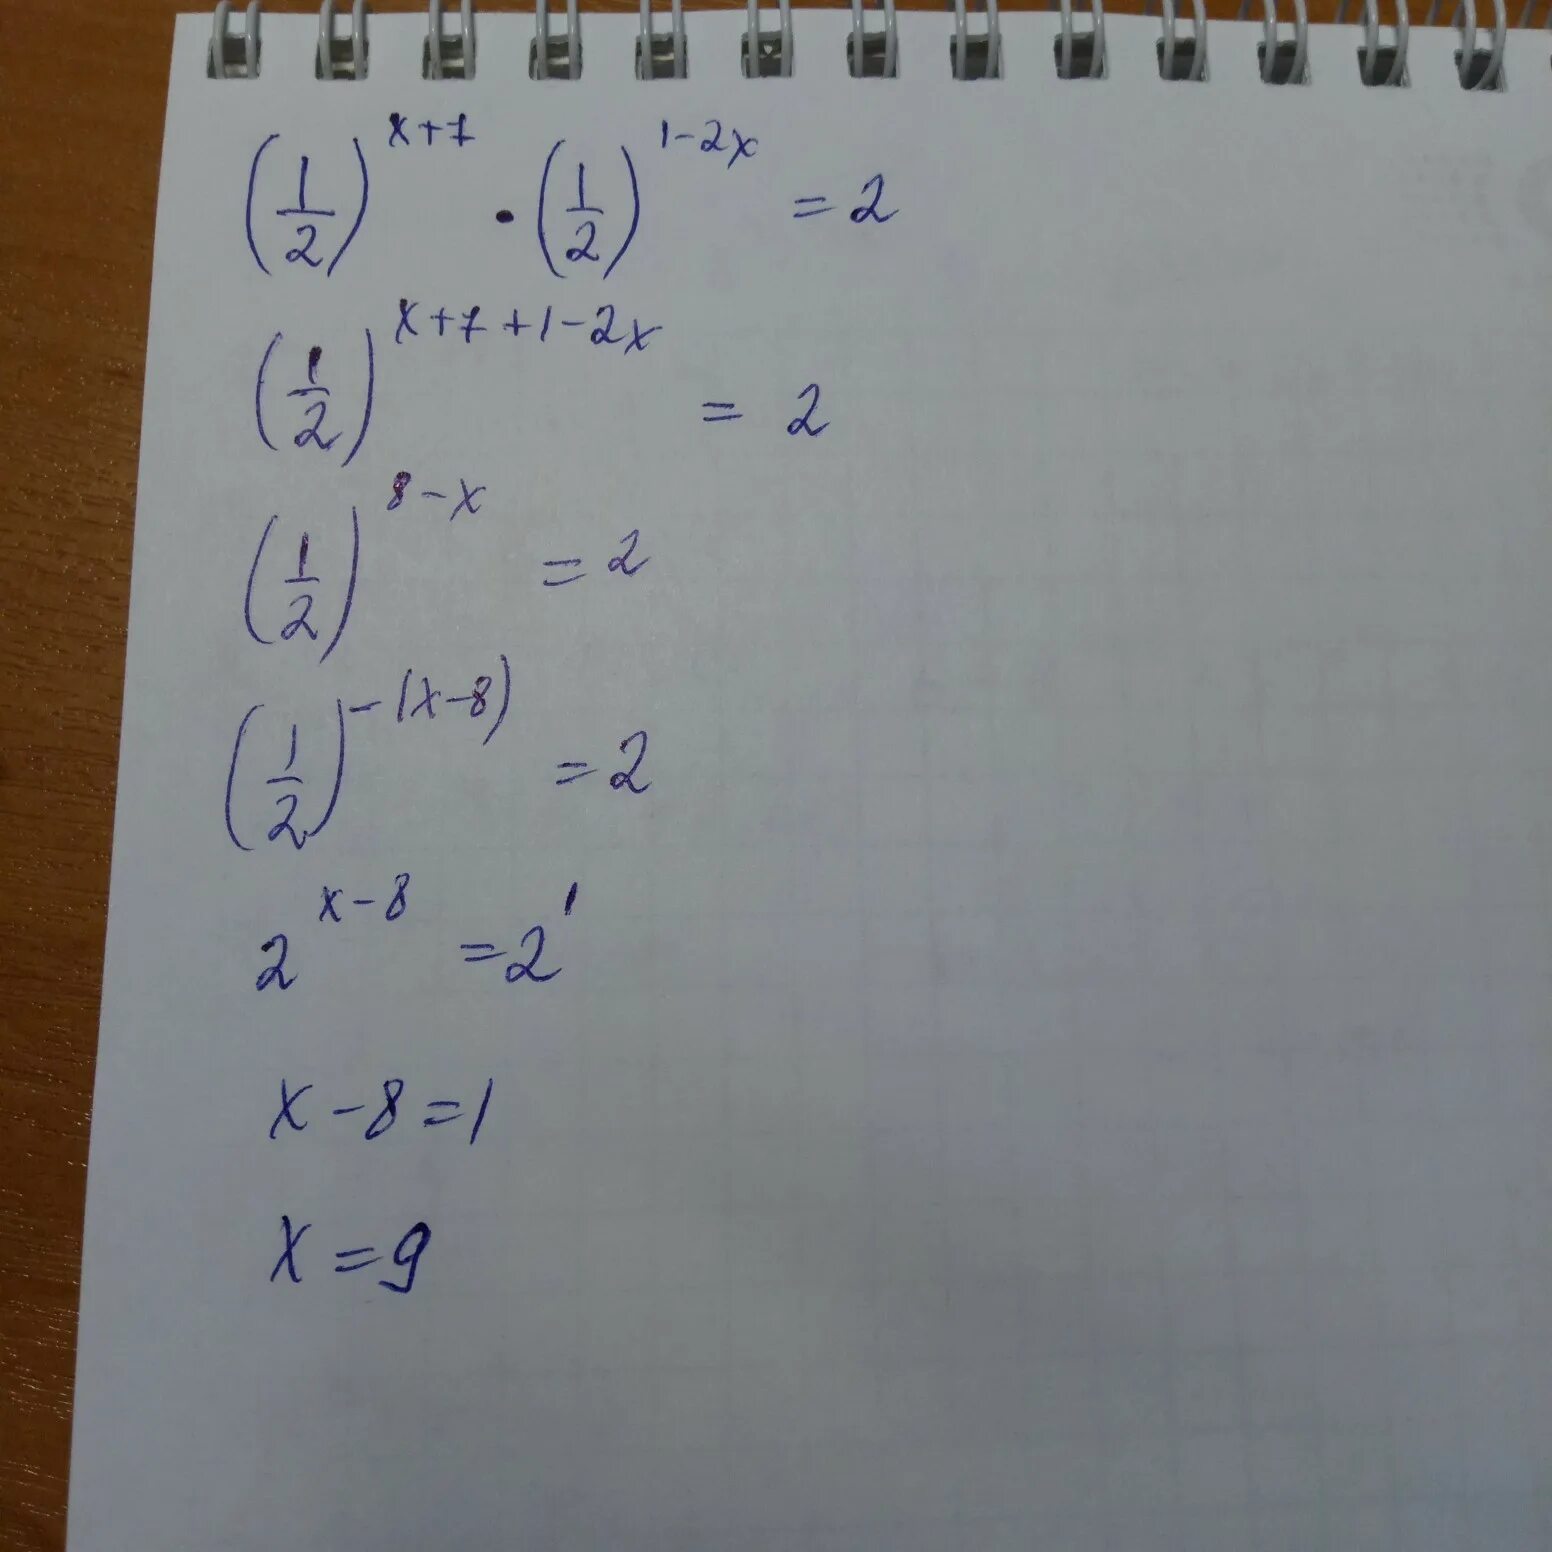 (1/2)^(x+7) · (1/2)^(1-2x) = 2
(1/2)^(x+7+1-2x) = 2
(1/2)^(8-x) = 2
(1/2)^(-(x-8)) = 2
2^(x-8) = 2^1
x-8=1
x=9